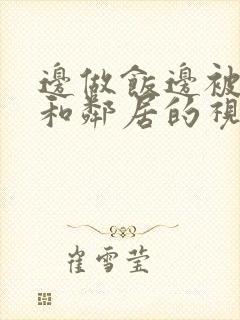 邊做飯邊被
和鄰居的視
崔雪莹